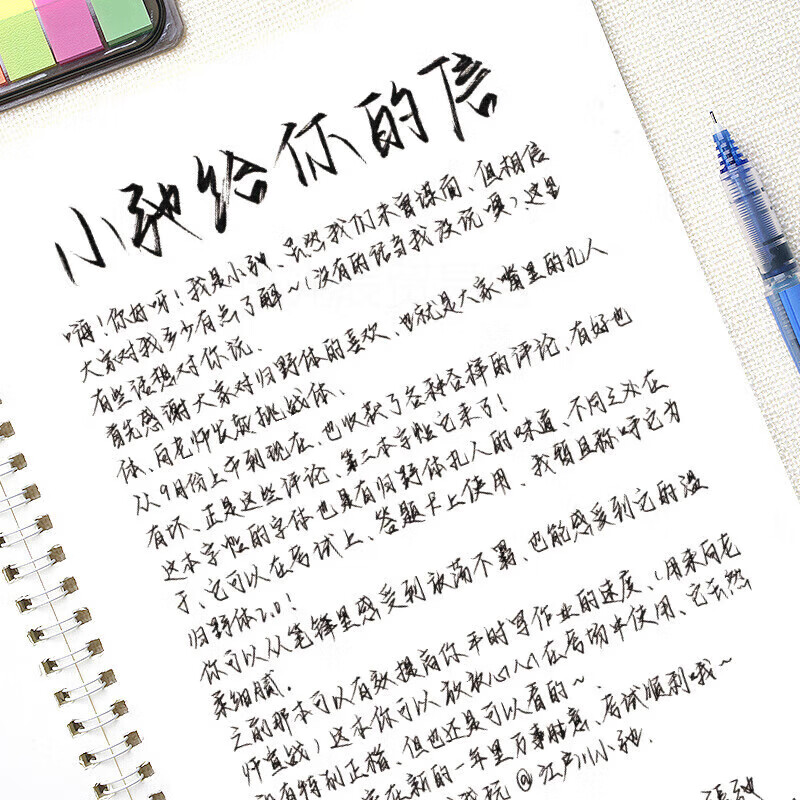 小驰给你的信
嗨！你好呀！我是小驰、虽然我们未曾谋面、但相信
大家对我多少有点了解～（没有的话当我没说噢）、这里
有些话想对你说.
首先感谢大家对归野体的喜欢、也就是大家嘴里的扎人
体、向老师发起挑战体.
从9月份上市到现在、也收获了各种各样的评论、有好也
有坏、正是这些评论、第二本字帖它来了！
这本字帖的字体也具有归野体扎人的味道、不同之处在
于、它可以在考试上、答题卡上使用、我暂且称呼它为
归野体2.0！
你可以从笔锋里感受到放荡不羁、也能感受到它的温
柔细腻.
之前那本可以有效提高你平时写作业的速度、（用来向老
师宣战）这本你可以放放心心在考场中使用、它虽然
没有特别正楷、但也还是可以看的～
在新的一年里万事胜意、考试顺利哦～
玩@江户川小驰.